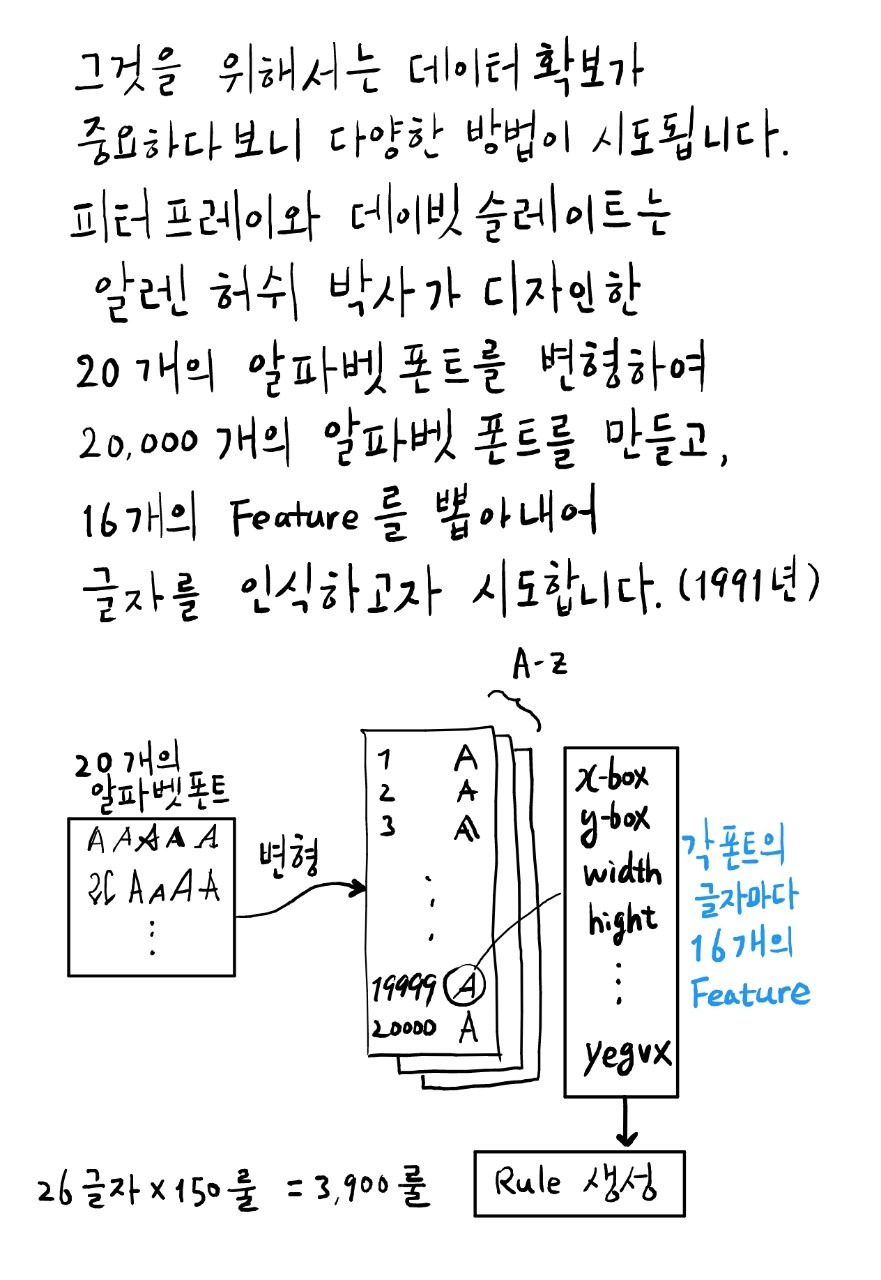 그것을 위해서는 데이터 확보가
중요하다 보니 다양한 방법이 시도됩니다.
피터 프레이와 데이빗 슬레이트는
알렌 허쉬 박사가 디자인한
20개의 알파벳 폰트를 변형하여
20,000개의 알파벳 폰트를 만들고,
16개의 Feature를 뽑아내어
글자를 인식하고자 시도합니다. (1991년)
A-Z
20개의
알파벳 폰트
A A A A A
A A A A
⋮
변형
1 A
2 A
3 A
⋮
19999 A
20000 A
x-box
y-box
width
hight
⋮
yegvx
각 폰트의
글자마다
16개의
Feature
26글자 × 150룰 = 3,900룰
Rule 생성